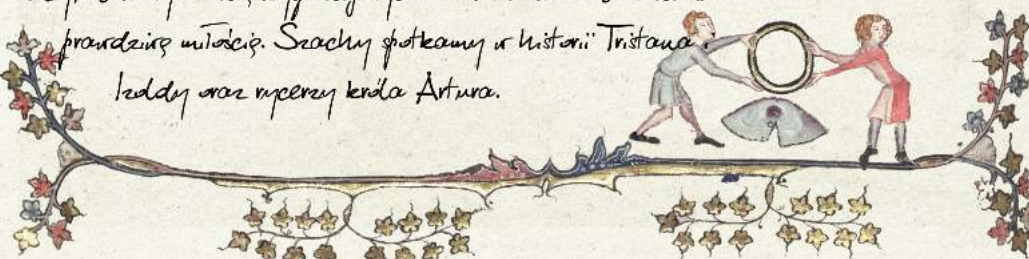 prawdziwą miłością. Szachy spotkamy w historii Tristana i
Izoldy oraz rycerzy króla Artura.